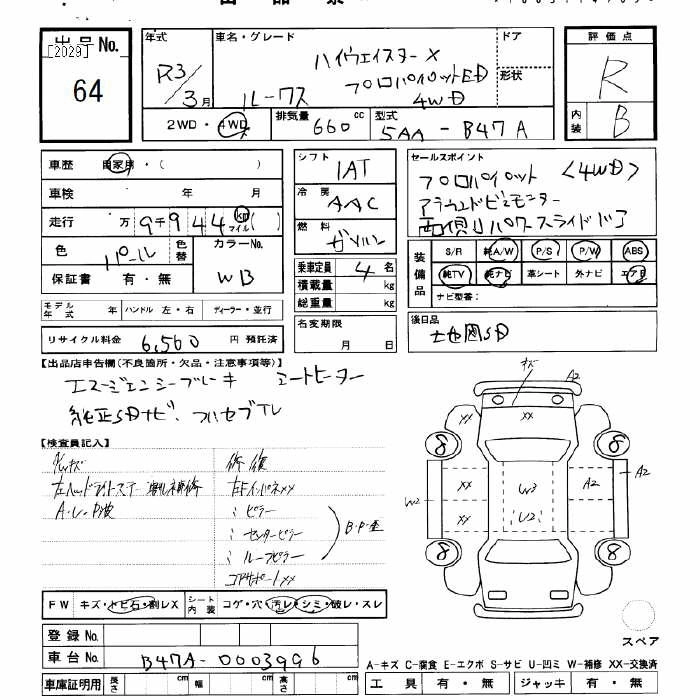 出品票
出品No. [2029] 64
年式 R3/3月
車名・グレード ハイウェイスターX プロパイロットED 4WD ルークス
ドア
形状
2WD・4WD
排気量 660cc
型式 5AA-B47A
評価点 R
内装 B
車歴 自家用・( )
車検 年 月
走行 万9千944km マイル( )
色 パール 色替
カラーNo. WB
保証書 有・無
シフト IAT
冷房 AAC
燃料 ガソリン
乗車定員 4名
積載量 kg
総重量 kg
セールスポイント
プロパイロット <4WD>
アラウンドビューモニター
両側パワースライドドア
装備品 S/R 純A/W P/S P/W ABS
純TV 純ナビ 革シート 外ナビ エアB
ナビ型番:
モデル年式 年 ハンドル 左・右 ディーラー・並行
リサイクル料金 6,560 円 預託済
名変期限 月 日
後日品 地図SD
【出品店申告欄(不良箇所・欠品・注意事項等)】
エマージェンシーブレーキ シートヒーター
純正SDナビ、フルセグTV
【検査員記入】
修復
左ヘッドライトステー
A・L・P波
左Fインパネxx
〃 ピラー
〃 センターピラー
〃 ルーフピラー
B・P・歪
コアサポートxx
キズ A2
xx xx
8 8
W2 xx W3 A2 A2
xx U2
8 8
スペア
FW キズ・トビ石・割レX
シート内装 コゲ・穴・汚レ・シミ・破レ・スレ
登録No.
車台No. B47A-0003996
車庫証明用 長さ cm 幅 cm 高さ cm
A-キズ C-腐食 E-エクボ S-サビ U-凹ミ W-補修 XX-交換済
工具 有・無 ジャッキ 有・無